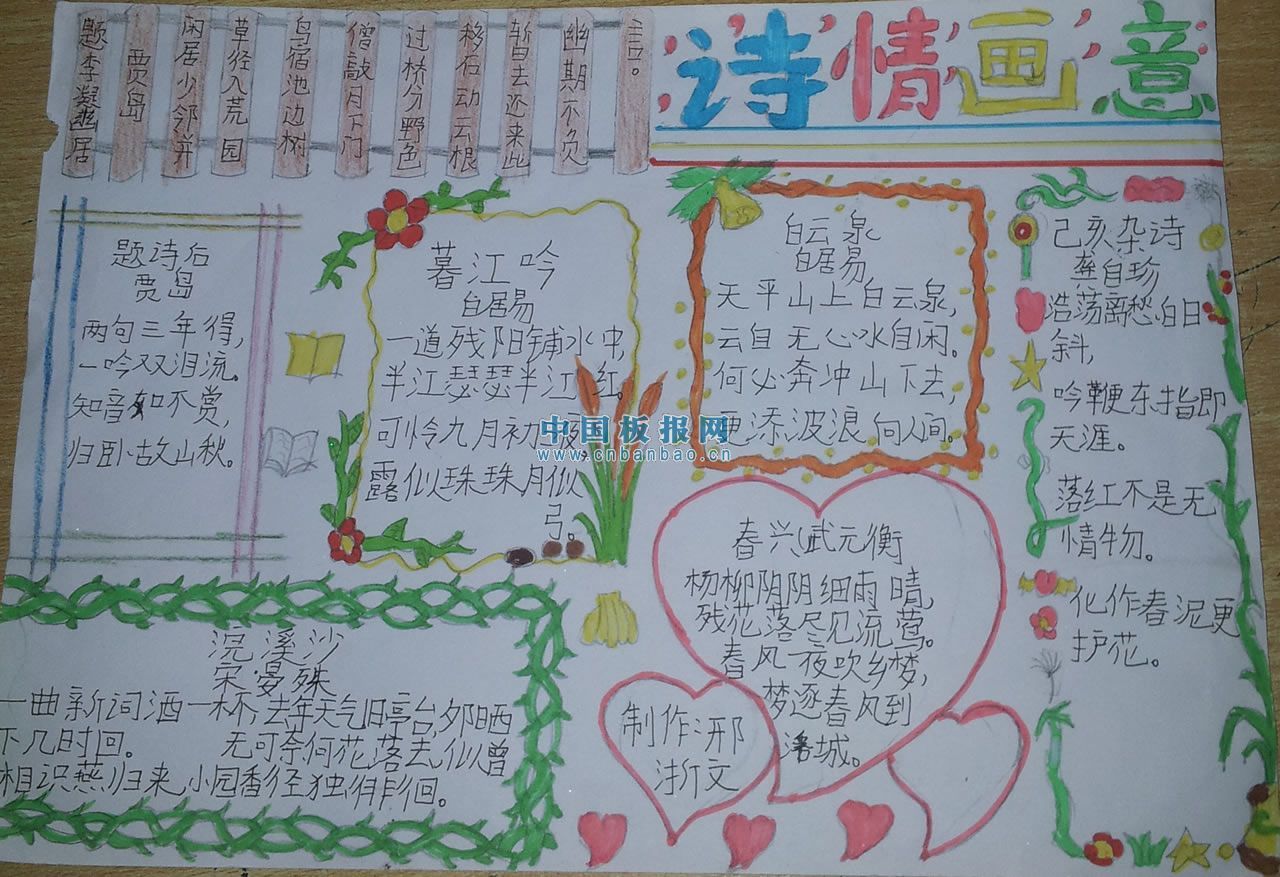 诗情画意
题李凝幽居
贾岛
闲居少邻并
草径入荒园
鸟宿池边树
僧敲月下门
过桥分野色
移石动云根
暂去还来此
幽期不负
言。
题诗后
贾岛
两句三年得，
一吟双泪流。
知音如不赏，
归卧故山秋。
暮江吟
白居易
一道残阳铺水中，
半江瑟瑟半江红。
可怜九月初夜。
露似珠珠月似
弓。
白云泉
白居易
天平山上白云泉，
云自无心水自闲。
何必奔冲山下去，
更添波浪向人间。
己亥杂诗
龚自珍
浩荡离愁白日
斜，
吟鞭东指即
天涯。
落红不是无
情物。
化作春泥更
护花。
春兴(武元衡
杨柳阴阴细雨晴，
残花落尽见流莺。
春风一夜吹乡梦，
梦逐春风到
洛城。
浣溪沙
宋晏殊
一曲新词酒一杯，去年天气旧亭台，夕晒
下几时回。 无可奈何花落去，似曾
相识燕归来，小园香径独徘徊。
制作：邢
浙文
中国板报网
www.cnbanbao.cn